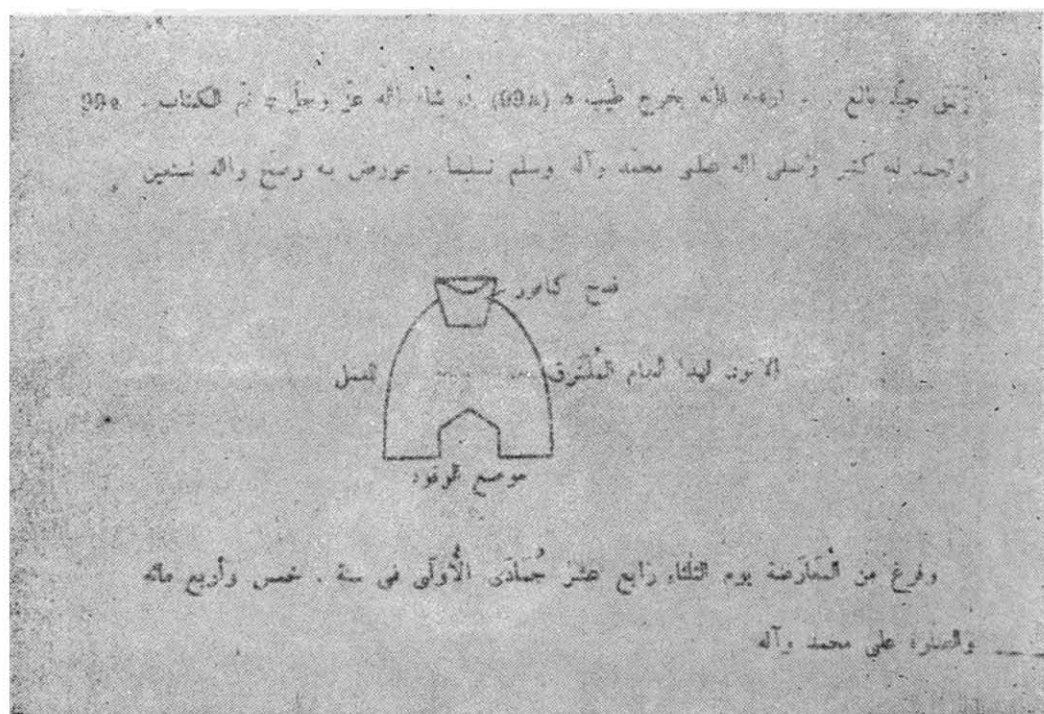 جيّد بالغ فإنّه يخرج طيّب (99a) إن شاء الله عزّ وجلّ تم الكتاب . 99a
والحمد لله كثير وصلّى الله على محمّد وآله وسلم تسليما . عورض به وصحّ والله نستعين
قدح كافور
الاتون لهذا المُشترق
موضع الوقود
وفرغ من المُعارضة يوم الثلثاء رابع عشر جُمادَى الأُولَى فى سنة . خمس وأربع مائه
والصلوة على محمد وآله